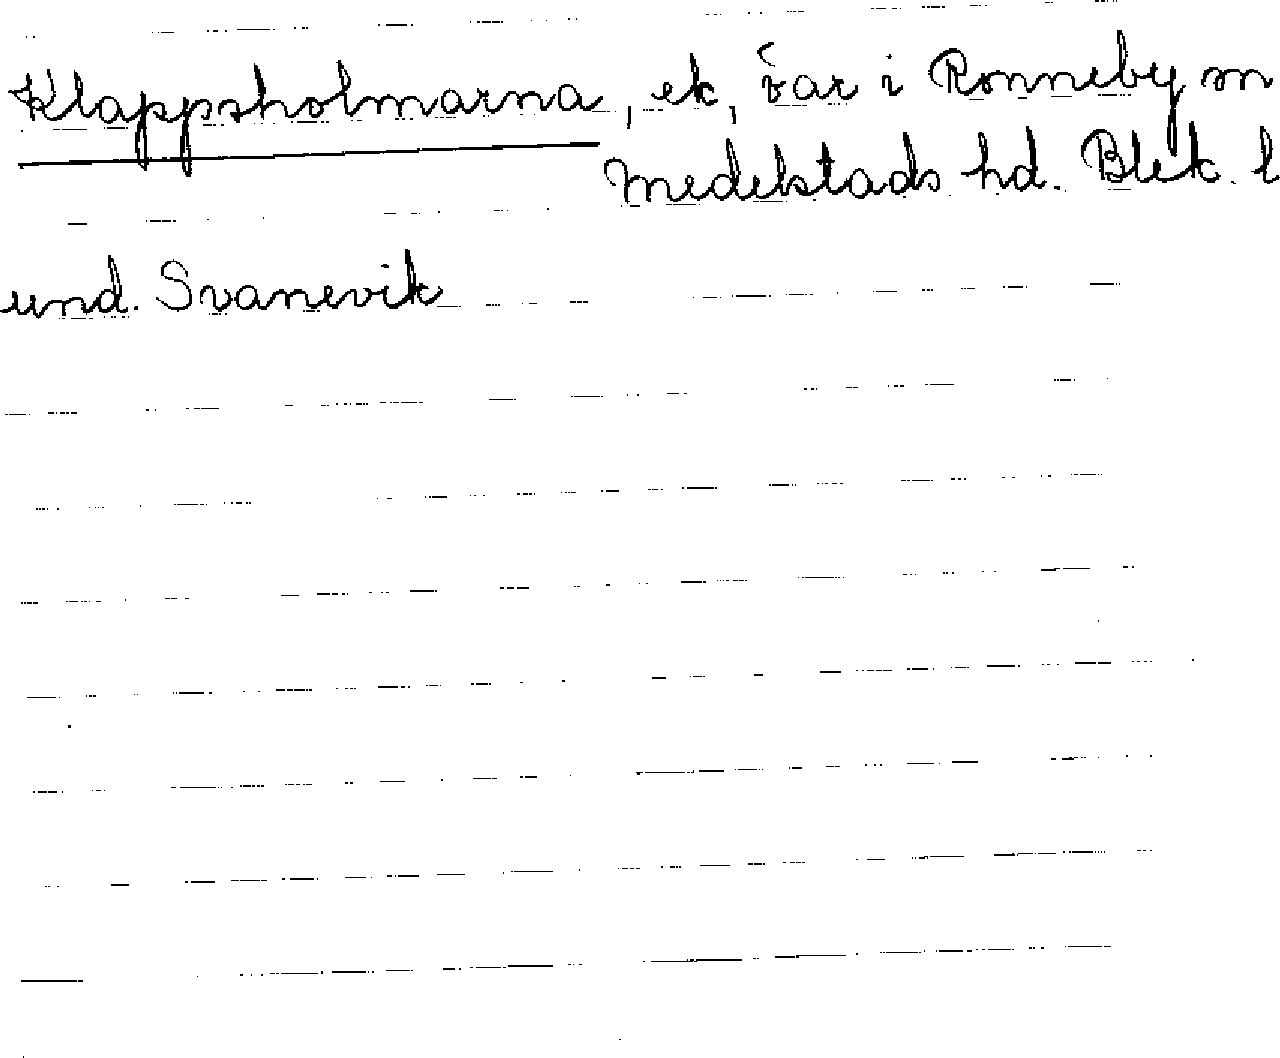 Klappsholmarna, ek, var i Ronneby sn
Medelstads hd. Blek. l
und. Svanevik